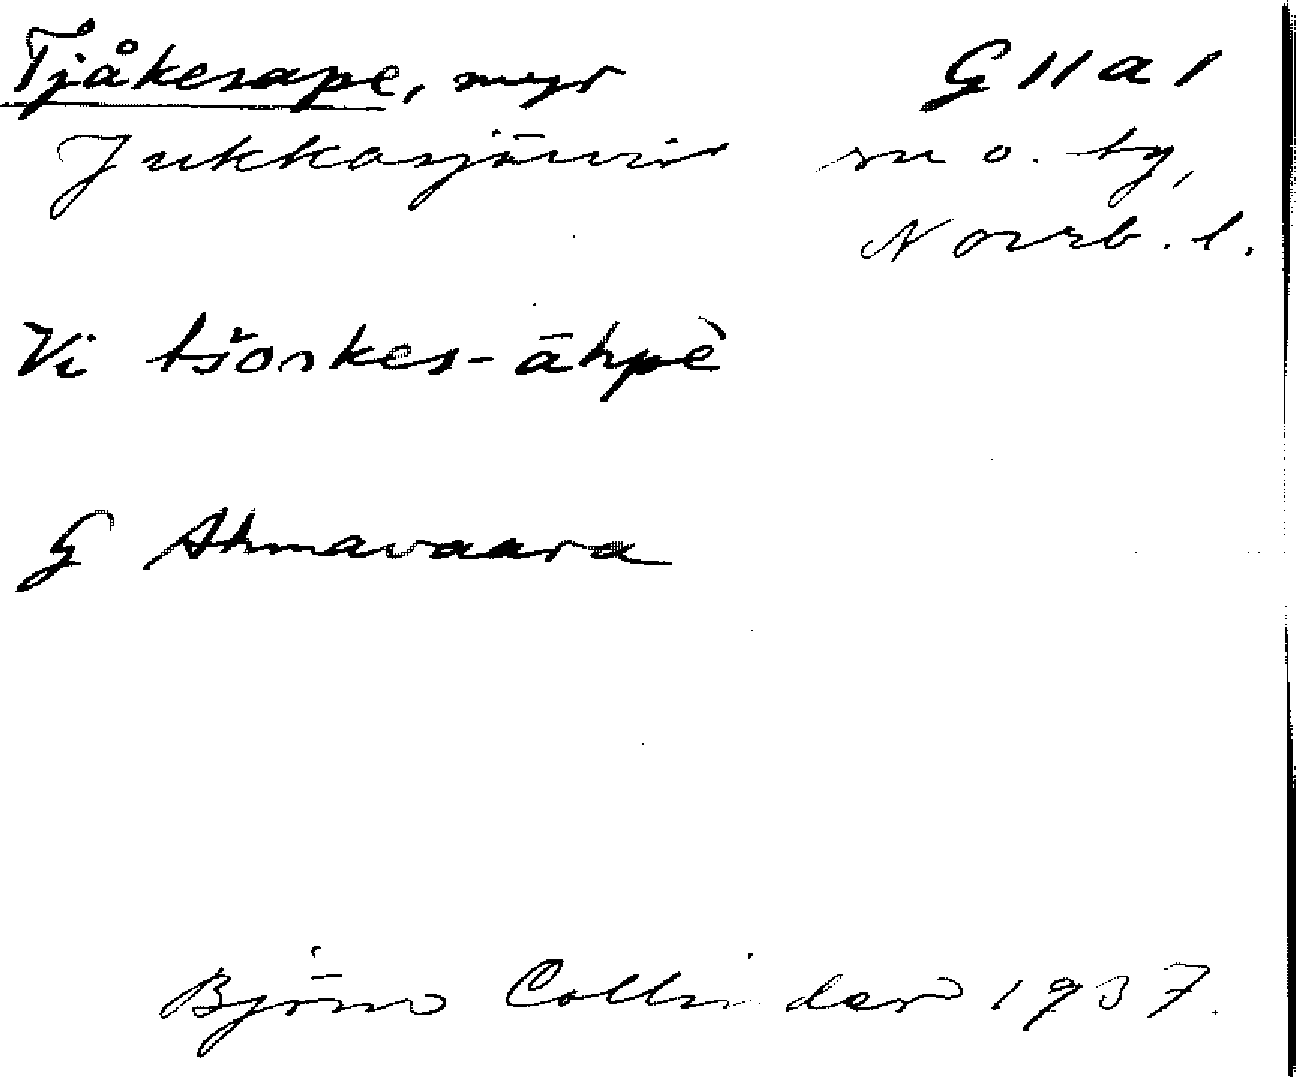 Tjåkesape, myr G 11 a 1
Jukkasjärvi sn o. tg,
Norrb. l.
Vi tšoskes-āhpè
G Ahmavaara
Björn Collinder 1937.